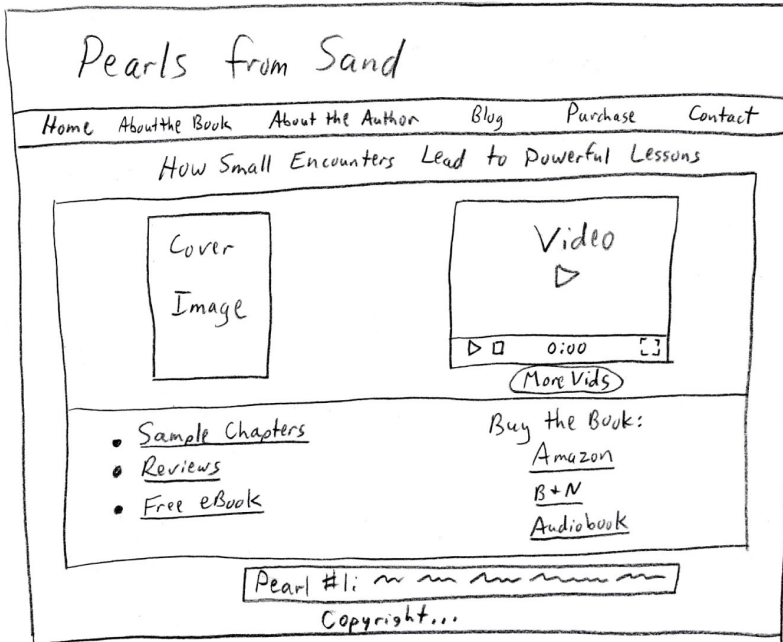 Pearls from Sand
Home About the Book About the Author Blog Purchase Contact
How Small Encounters Lead to Powerful Lessons
Cover
Image
Video
0:00
More Vids
Sample Chapters
Reviews
Free eBook
Buy the Book:
Amazon
B+N
Audiobook
Pearl #1:
Copyright...